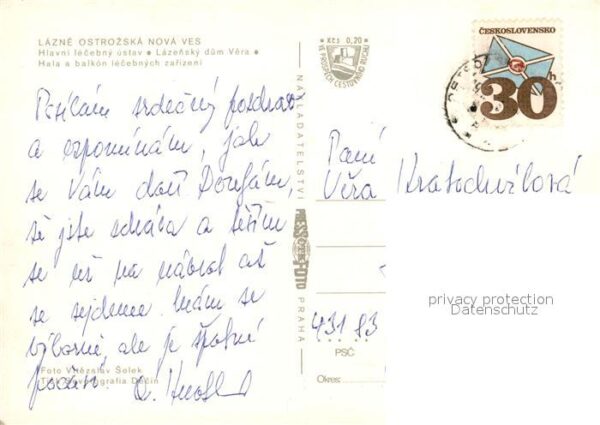 LÁZNĚ OSTROŽSKÁ NOVÁ VES
Hlavní léčebný ústav • Lázeňský dům Věra •
Hala a balkón léčebných zařízení
Posílám srdečný pozdrav
a vzpomínám, jak
se Vám daří. Doufám,
že jste zdráva a těším
se už na návrat až
se sejdeme. Mám se
výborně, ale je špatné
počasí.
Foto Vítězslav Šolek
Tisk Severografia Děčín
NAKLADATELSTVÍ
PRAHA
Kčs 0,20
VE PROSPĚCH CESTOVNÍHO RUCHU
ČESKOSLOVENSKO
30 h
Paní
Věra Kratochvílová
431 83
PSČ
Okres:
privacy protection
Datenschutz